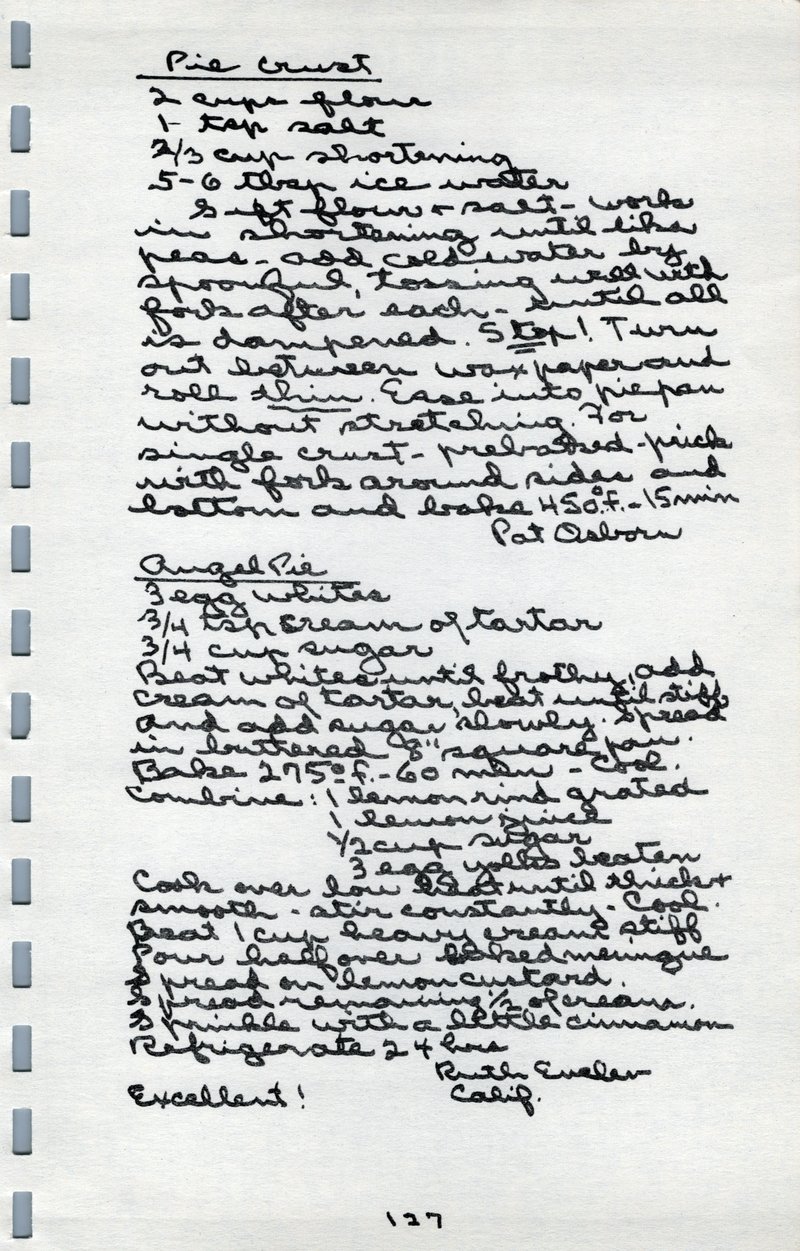 Pie Crust
2 cups flour
1 tsp salt
2/3 cup shortening
5-6 tbsp ice water
Sift flour + salt - work
in shortening until like
peas - add cold water by
spoonful, tossing well with
fork after each - until all
is dampened. Stop! Turn
out between wax paper and
roll thin. Ease into pie pan
without stretching. For
single crust - prebaked - prick
with fork around sides and
bottom and bake 450°f. - 15 min
Pat Osborn
Angel Pie
3 egg whites
3/4 tsp cream of tartar
3/4 cup sugar
Beat whites until frothy, add
cream of tartar, beat until stiff
and add sugar slowly. Spread
in buttered 8" square pan.
Bake 275°f. - 60 min - Cool.
Combine: 1 lemon rind grated
1 lemon juice
1/2 cup sugar
3 egg yolks beaten
Cook over low heat until thick +
smooth - stir constantly - Cool.
Beat 1 cup heavy cream stiff
Pour half over baked meringue
Spread on lemon custard.
Spread remaining 1/2 of cream.
Sprinkle with a little cinnamon
Refrigerate 24 hrs
Ruth
Excellent! Calif.
127